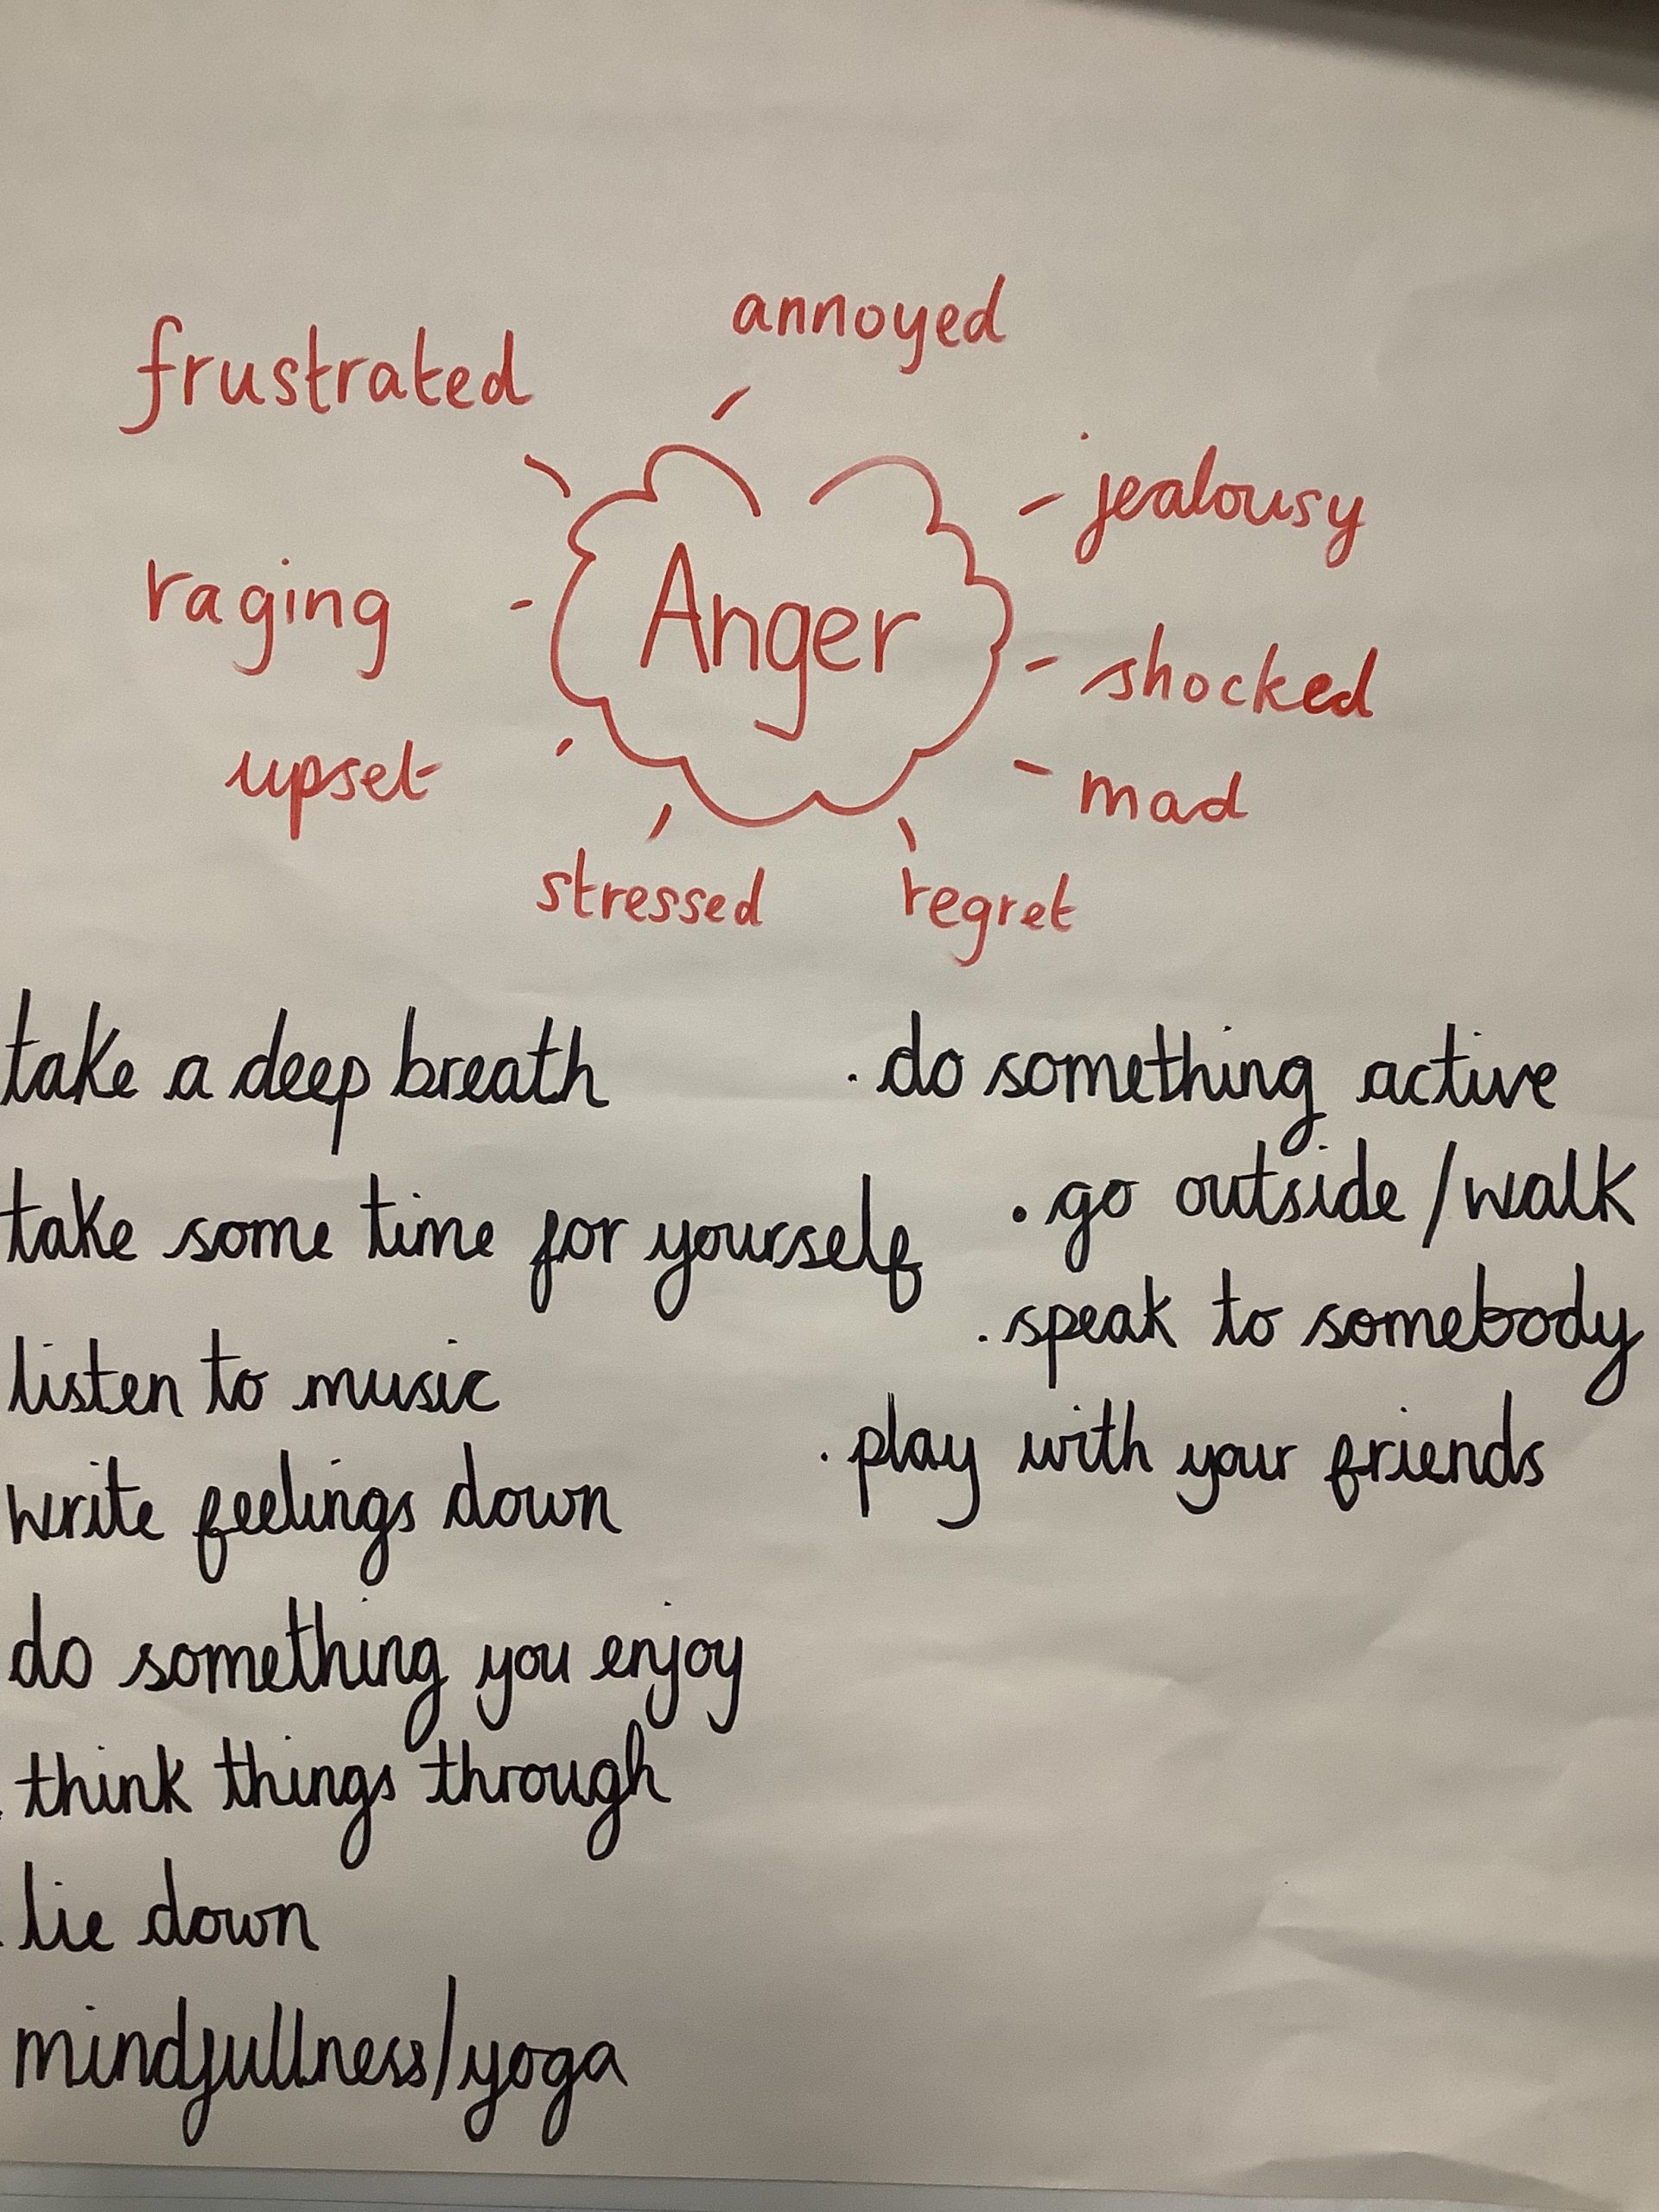 annoyed
frustrated
jealousy
raging
Anger
shocked
upset
mad
stressed
regret
take a deep breath
take some time for yourself
listen to music
write feelings down
do something you enjoy
. think things through
. lie down
mindfullness/yoga
. do something active
. go outside/walk
. speak to somebody
. play with your friends